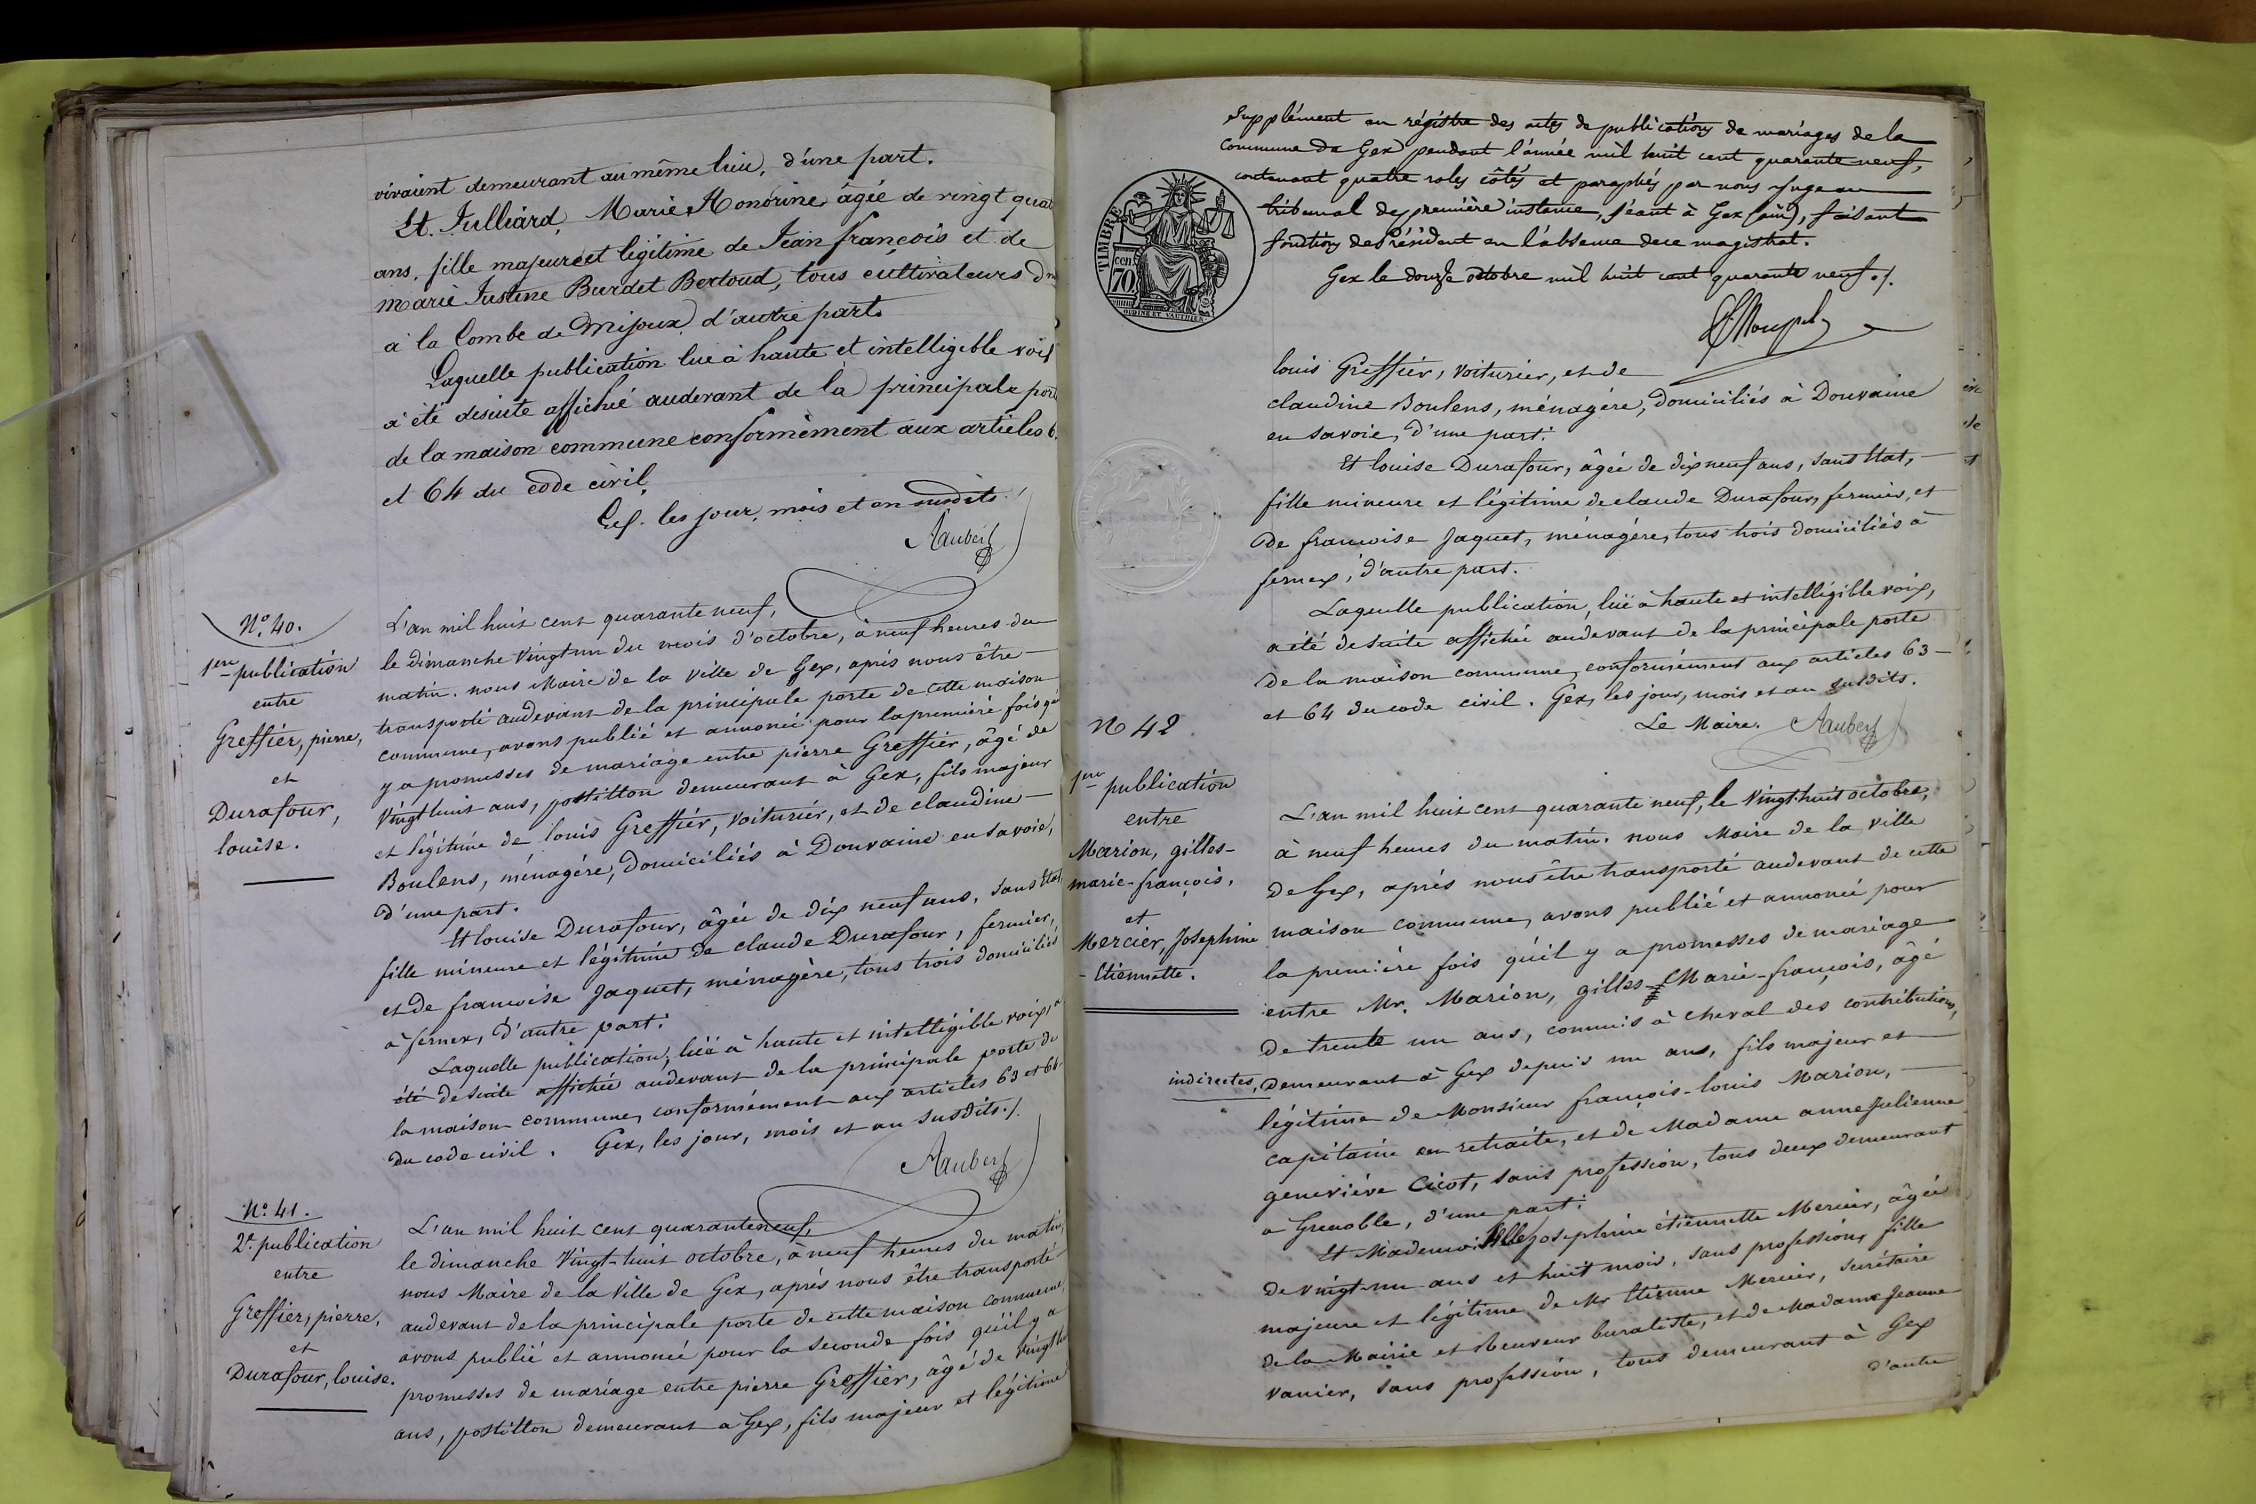 vivaient demeurant au même lieu, d'une part.
Et. Julliard, Marie Honorine âgée de vingt quat
ans, fille majeure et légitime de Jean françois et de
Marie Justine Burdet Bertoud, tous cultivateurs
à la Combe de Mijoux d'autre part.
Laquelle publication lue à haute et intelligible voix
a été desuite affiché audevant de la principale porte
de la maison commune conformèment aux articles 6
et 64 du code civil.
Gex. les jour, mois et an susdits.
Aaubert
N° 40.
1ere publication
entre
Greffier, pierre,
et
Durafour,
louise.
L'an mil huit cent quarante neuf,
le dimanche vingt un du mois d'octobre, à neuf heures du
matin. nous Maire de la ville de Gex, après nous être
transporté audevant de la principale porte de cette maison
commune, avons publié et annoncé pour la première fois qu'il
y a promesses de mariage entre pierre Greffier, âgé de
vingt huit ans, postillon demeurant à Gex, fils majeur
et légitime de louis Greffier, voiturier, et de claudine
Boulens, ménagère, domiciliés à Douvaine en savoie,
d'une part.
Et louise Durafour, âgée de dix neuf ans, sans Etat
fille mineure et légitime de claude Durafour, fermier,
et de francoise Jaquet, ménagère, tous trois domiciliés
à fernex, d'autre part.
Laquelle publication, lüe à haute et intelligible voix, a
été desuite affichée audevant de la principale porte de
la maison commune, conformément aux articles 63 et 64
du code civil. Gex, les jour, mois et an susdits./.
Aaubert
N° 41.
2e. publication
entre
Greffier, pierre,
et
Durafour, louise.
L'an mil huit cent quarante neuf,
le dimanche Vingt-huit octobre, à neuf heures du matin,
nous Maire de la Ville de Gex, après nous être transporté
audevant de la principale porte de cette maison commune
avons publié et annoncé pour la seconde fois qu'il y a
promesses de mariage entre pierre Greffier, âgé de vingt huit
ans, postillon demeurant a Gex, fils majeur et légitime
Supplément au régistre des actes de publications de mariages de la
commune de Gex pendant l'année mil huit cent quarante neuf,
contenant quatre roles côtés et paraphés par nous Juge au
tribunal de première instance, séant à Gex (ain), faisant
fonctions de Président en l'absence de ce magistrat.
Gex le douze octobre mil huit cent quarante neuf./.
TIMBRE
cen
70
louis Greffier, voiturier, et de
claudine Boulens, ménagère, domiciliés à Douvaine
en savoie, d'une part.
Et louise Durafour, âgée de dix neuf ans, sans Etat,
fille mineure et légitime de claude Durafour, fermier, et
de francoise Jaquet, ménagère, tous trois domiciliés à
fernex, d'autre part.
Laquelle publication, lüe à haute et intelligible voix,
a été desuite affichée audevant de la principale porte
de la maison commune, conformément aux articles 63
et 64 du code civil. Gex, les jour, mois et an susdits.
Le Maire. Aaubert
N° 42
1ere publication
entre
Marion, gilles-
marie-françois,
et
Mercier, Josephine
-Etiennette.
L'an mil huit cent quarante neuf, le Vingt-huit octobre,
à neuf heures du matin. nous Maire de la ville
de Gex, après nous être transporté audevant de cette
maison commune, avons publié et annoncé pour
la première fois qu'il y a promesses de mariage
entre Mr. Marion, gilles Marie-françois, âgé
de trente un ans, commis à cheval des contributions
indirectes, demeurant à Gex depuis un ans, fils majeur et
légitime de Monsieur françois-louis Marion,
capitaine en retraite, et de Madame anne Julienne
geneviève Cicot, sans profession, tous deux demeurant
a Grenoble, d'une part.
Et Mademoiselle Josephine étiennette Mercier, âgée
de vingt-un ans et huit mois, sans profession, fille
majeure et légitime de Mr Etienne Mercier, secrétaire
de la Mairie et Receveur buraliste, et de Madame Jeanne
vanier, sans profession, tous demeurant à Gex
d'autre